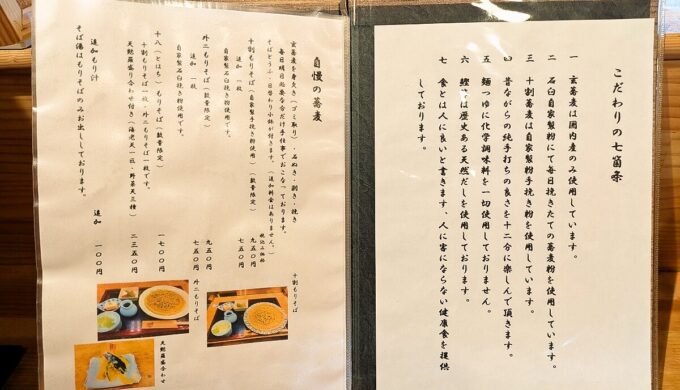 こだわりの七箇条
一 玄蕎麦は国内産のみ使用しています。
二 石臼自家製粉にて毎日挽きたての蕎麦粉を使用しています。
三 十割蕎麦は自家製粉手挽き粉を使用しています。
四 昔ながらの純手打ちの良さを十二分に楽しんで頂きます。
五 麺つゆに化学調味料を一切使用しておりません。
六 鰹節は歴史ある天然だしを使用しております。
七 食とは人に良いと書きます、人に害にならない健康食を提供
しております。
自慢の蕎麦
玄蕎麦を身欠き(ゴミ取り)・石ぬき・剥き・挽き
毎日明日必要な分だけ手仕事でおこなっております。
そばどうふ・日替わり小鉢が付きます。(追加料金はありません。)
税込み価格
十割もりそば(自家製手挽き粉使用)(数量限定) 九五〇円
追加 一枚 七五〇円
自家製石臼挽き粉使用です。
外二もりそば(数量限定) 九五〇円
追加 一枚 七五〇円
自家製石臼挽き粉使用です。
十八(とはち)もりそば(数量限定) 一七〇〇円
十割もりそば一枚・外二もりそば一枚です。
天麩羅盛り合わせ付き(海老天一匹・野菜天三種) 二三五〇円
追加もり汁 追加 一〇〇円
そば湯はもりそばのみお出ししております。
十割もりそば
外二もりそば
天麩羅盛合わせ